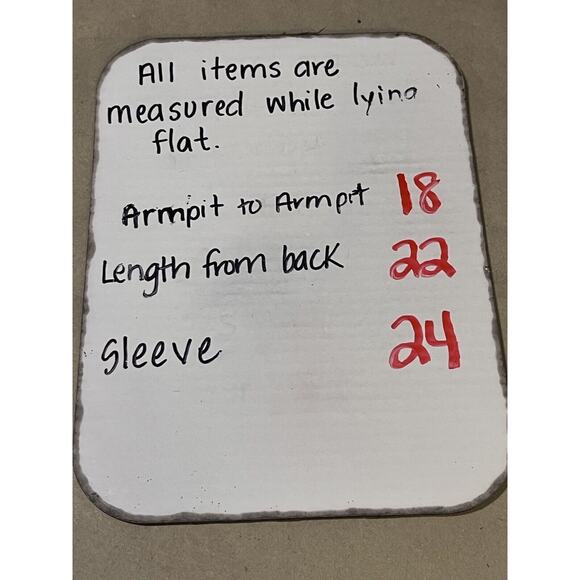 All items are
measured while lying
flat.
Armpit to Armpit 18
Length from back 22
Sleeve 24